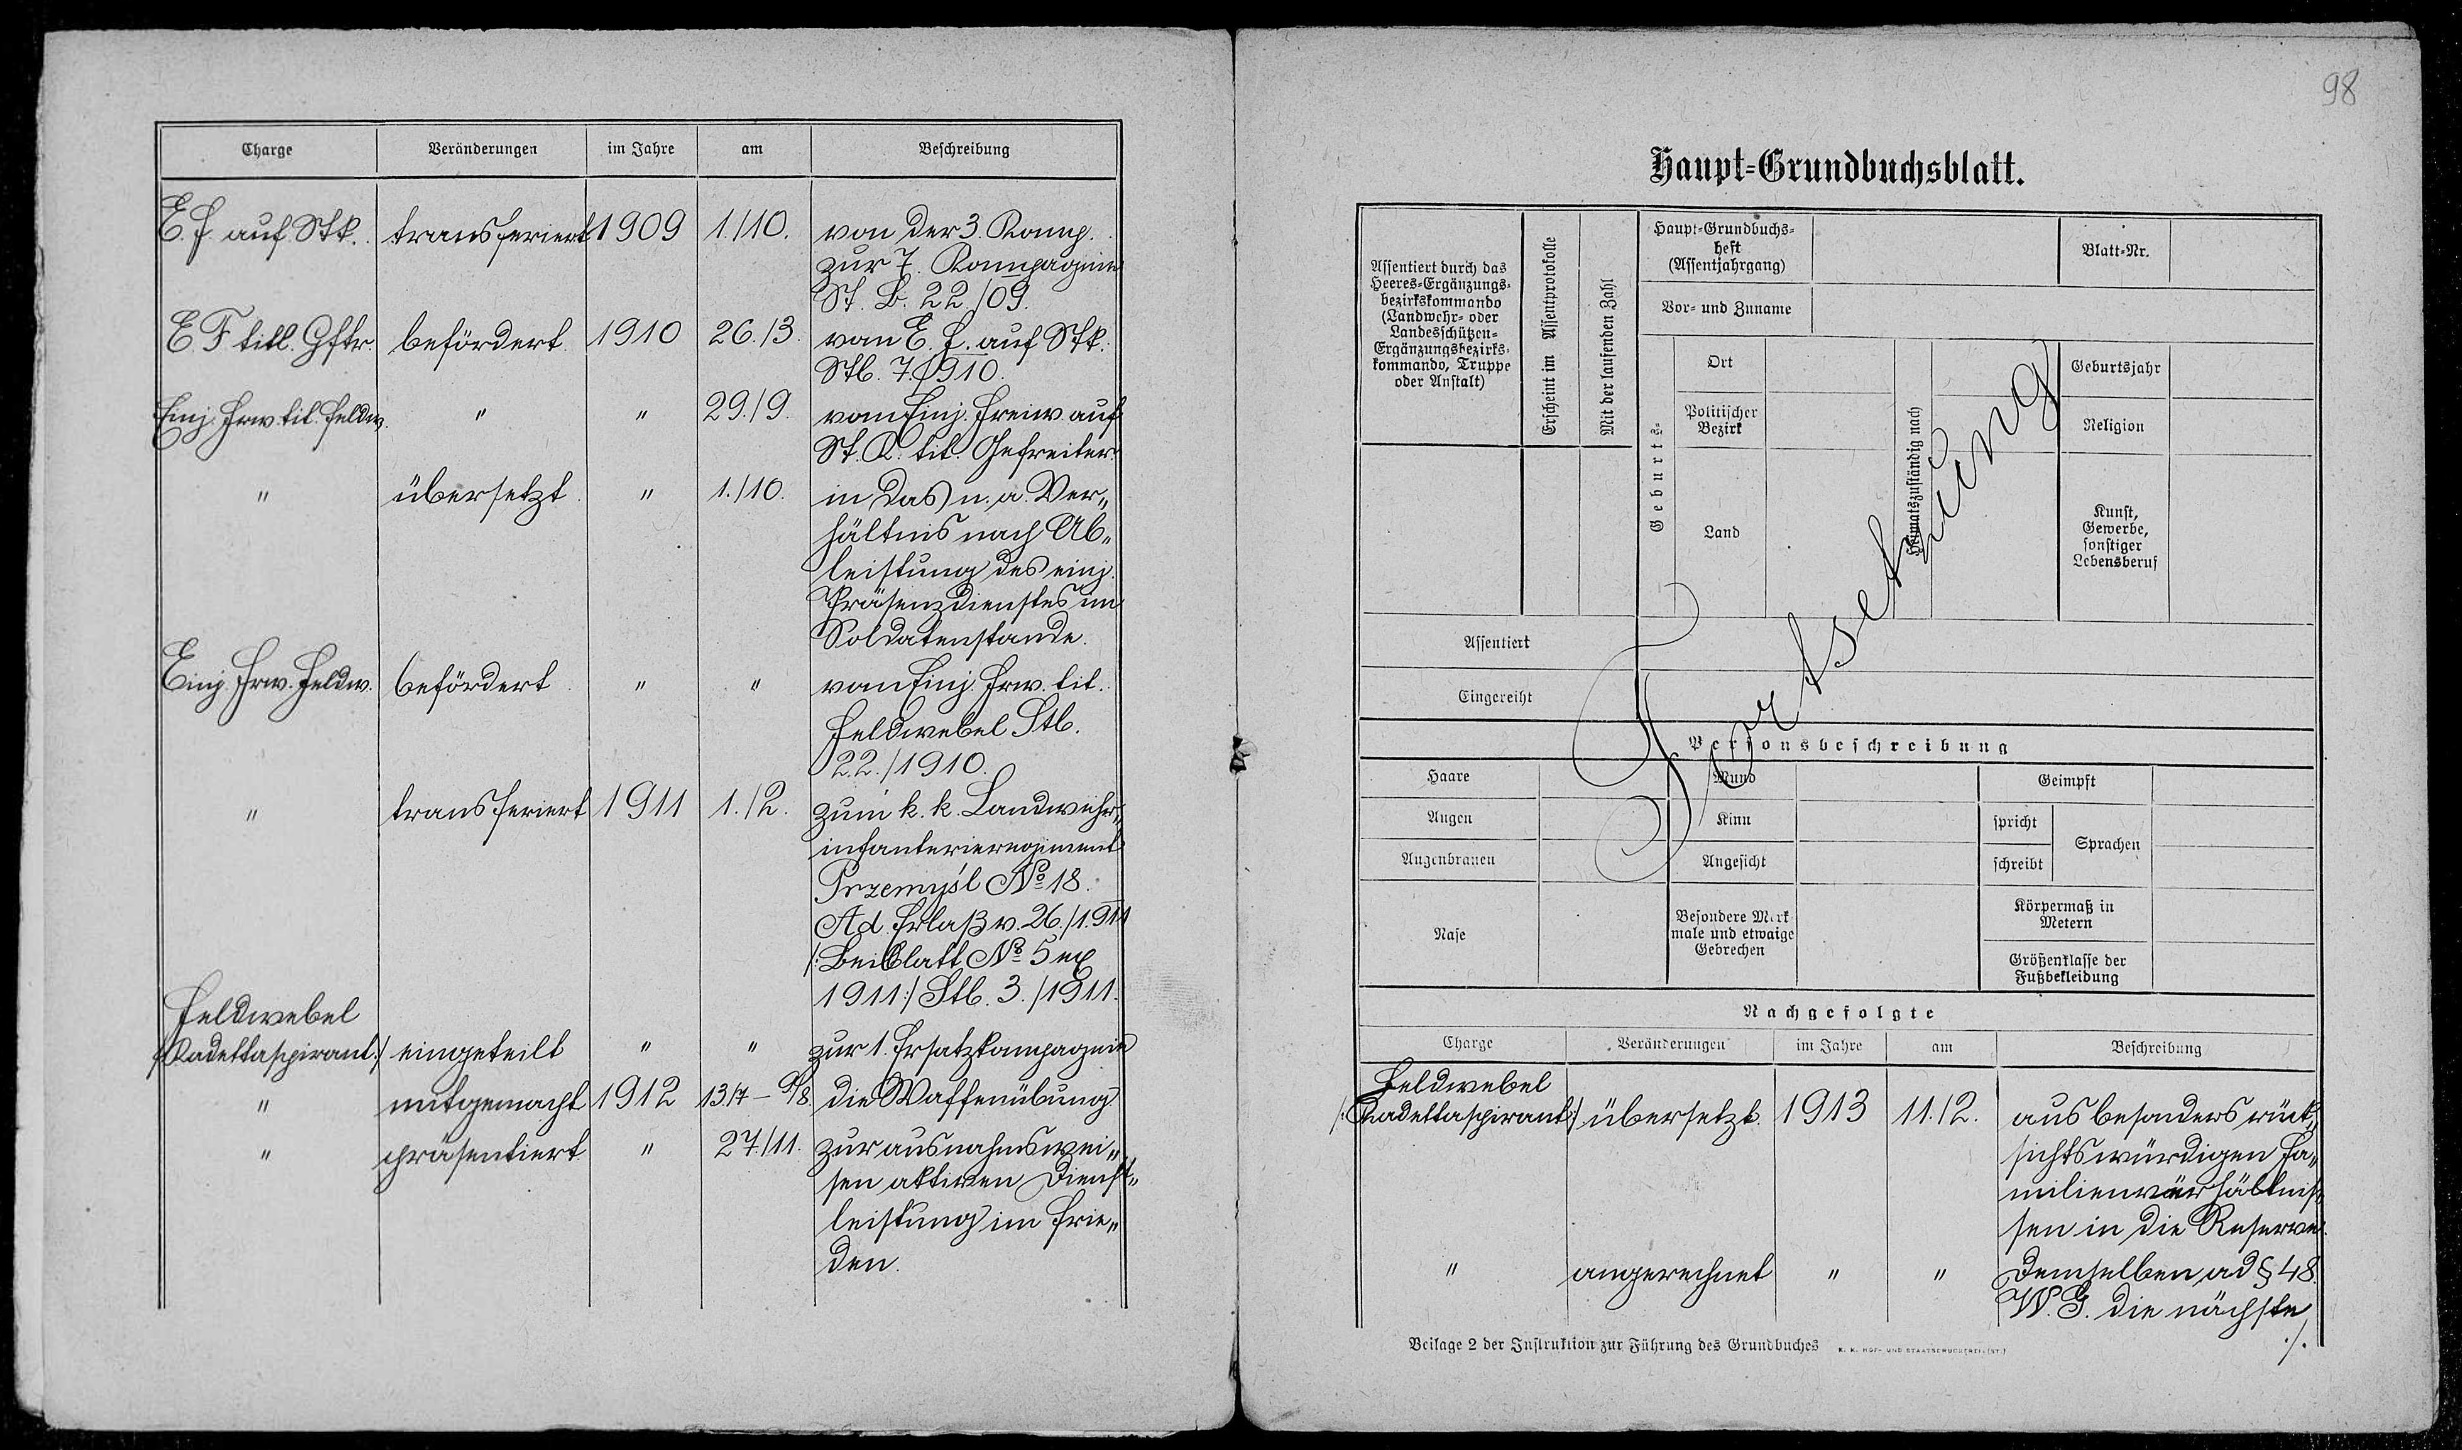 Charge Veränderungen im Jahre am Beschreibung
E. F. auf Stk. transferiert 1909 1./10. von der 3. Komp.
zur 7. Kompagnie
St. B. 22./09.
E. F. titl. Gftr. befördert 1910 26./3. vom E. F. auf Stk.
Stb. 7./1910.
Einj. Frw. tit. Feldw. " " 29./9. vom Einj. Freiw auf
St. K. tit. Gefreiter.
" übersetzt " 1./10. in das n. a. Ver„
hältnis nach Ab„
leistung des einj.
Präsenzdienstes im
Soldatenstande.
Einj. Frw. Feldw. befördert " " vom Einj. Frw. tit.
Feldwebel Stb.
22./1910.
" transferiert 1911 1./2. zum k. k. Landwehr„
infanterieregiment
Przemyśl No 18.
Ad. Erlaß v. 26./1. 911
/: Beiblatt No 5 ex
1911 :/ Stb. 3./1911.
Feldwebel
/: Kadettaspirant :/ eingeteilt " " zur 1. Ersatzkompagnie
" mitgemacht 1912 13./7 – 9/8. die Waffenübung
" präsentiert " 27./11. zur ausnahmswei„
sen aktiven Dienst„
leistung im Frie„
den.
98
Haupt-Grundbuchsblatt.
Assentiert durch das
Heeres-Ergänzungs-
bezirkskommando
(Landwehr- oder
Landesschützen-
Ergänzungsbezirks-
kommando, Truppe
oder Anstalt)
Erscheint im Assentprotokolle
Mit der laufenden Zahl
Haupt-Grundbuchs-
heft
(Assentjahrgang)
Blatt-Nr.
Vor- und Zuname
Geburts-
Ort
Politischer
Bezirk
Land
Heimatszuständig nach
Geburtsjahr
Religion
Kunst,
Gewerbe,
sonstiger
Lebensberuf
Fortsetzung
Assentiert
Eingereiht
Personsbeschreibung
Haare Mund Geimpft
Augen Kinn spricht Sprachen
Augenbrauen Angesicht schreibt
Nase
Besondere Merk-
male und etwaige
Gebrechen
Körpermaß in
Metern
Größenklasse der
Fußbekleidung
Nachgefolgte
Charge Veränderungen im Jahre am Beschreibung
Feldwebel
/: Kadettaspirant :/ übersetzt 1913 11./2. aus besonders rück„
sichtswürdigen Fa„
milienverhältnis„
sen in die Reserve.
" angerechnet " " Demselben ad § 48.
W. G. die nächste
./.
Beilage 2 der Instruktion zur Führung des Grundbuches K. K. HOF- UND STAATSDRUCKEREI. (ST.)